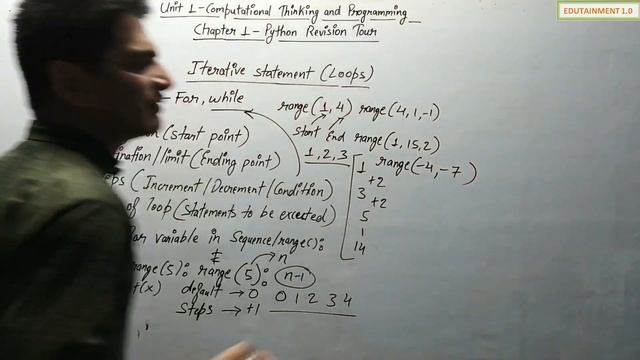 EDUTAINMENT 1.0
Unit 1-Computational Thinking and Programming
Chapter 1-Python Revision Tour
Iterative statement (Loops)
For, while
range(1,4) range(4,1,-1)
start End range(1,15,2)
(start point)
1,2,3
range(-4,-7)
/limit (Ending point)
(Increment/Decrement/Condition)
of loop (statements to be executed)
1
+2
3
+2
5
1
14
for variable in Sequence/range():
n
range(5): range(5): n-1
(x) default → 0 0 1 2 3 4
Steps → +1